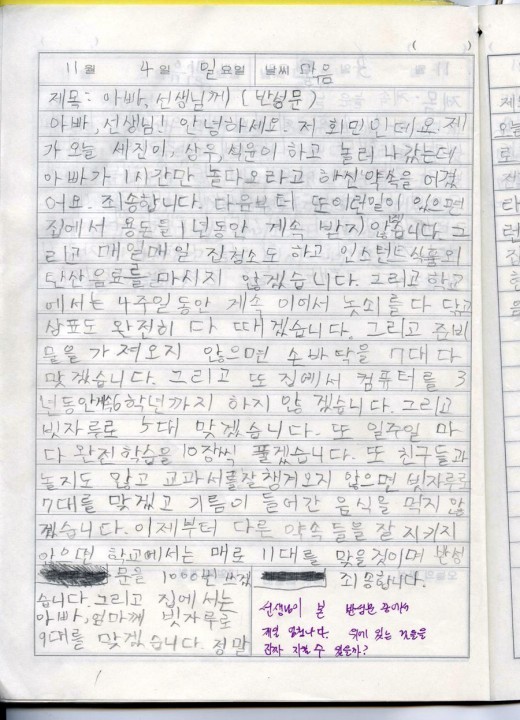 11월 4일 일요일 날씨 맑음
제목: 아빠, 선생님께) (반성문)
아빠, 선생님! 안녕하세요. 저 희민인데요. 제
가 오늘 세진이, 상우, 석윤이 하고 놀러 나갔는데
아빠가 1시간만 놀다오라고 하신 약속을 어겼
어요. 죄송합니다. 다음부터 또 이런일이 있으면
집에서 용돈을 1년동안 계속 받지 않겠습니다. 그
리고 매일매일 집청소도 하고 인스턴트식품의
탄산음료를 마시지 않겠습니다. 그리고 학교
에서는 4주일 동안 계속 이어서 놋쇠를 다 닦고
상표도 완전히 다 따겠습니다. 그리고 준비
물을 가져오지 않으면 손바닥을 7대 다
맞겠습니다. 그리고 또 집에서 컴퓨터를 3
년동안 계속 6학년까지 하지 않겠습니다. 그리고
빗자루로 5대 맞겠습니다. 또 일주일 마
다 완전학습을 10장씩 풀겠습니다. 또 친구들과
놀지도 않고 교과서를 잘 챙겨오지 않으면 빗자루로
7대를 맞겠고 기름이 들어간 음식을 먹지 않
겠습니다. 이제부터 다른 약속들을 잘 지키지
않으면 학교에서는 매로 11대를 맞을것이며 반성
문을 1000번 쓰겠
습니다. 그리고 집에서는
아빠, 엄마께 빗자루로
9대를 맞겠습니다. 정말
죄송합니다.
선생님이 본 반성문 중에서
제일 멋있다. 위에 있는 것들을
감자 지킬 수 있을까?